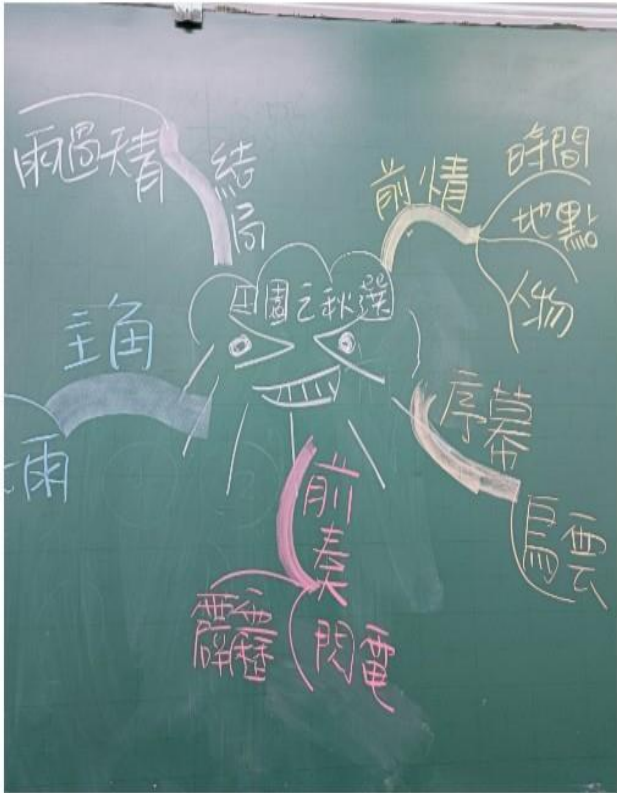 田園之秋選
前情
時間
地點
人物
序幕
烏雲
前奏
閃電
霹靂
主角
雨
結局
雨過天青